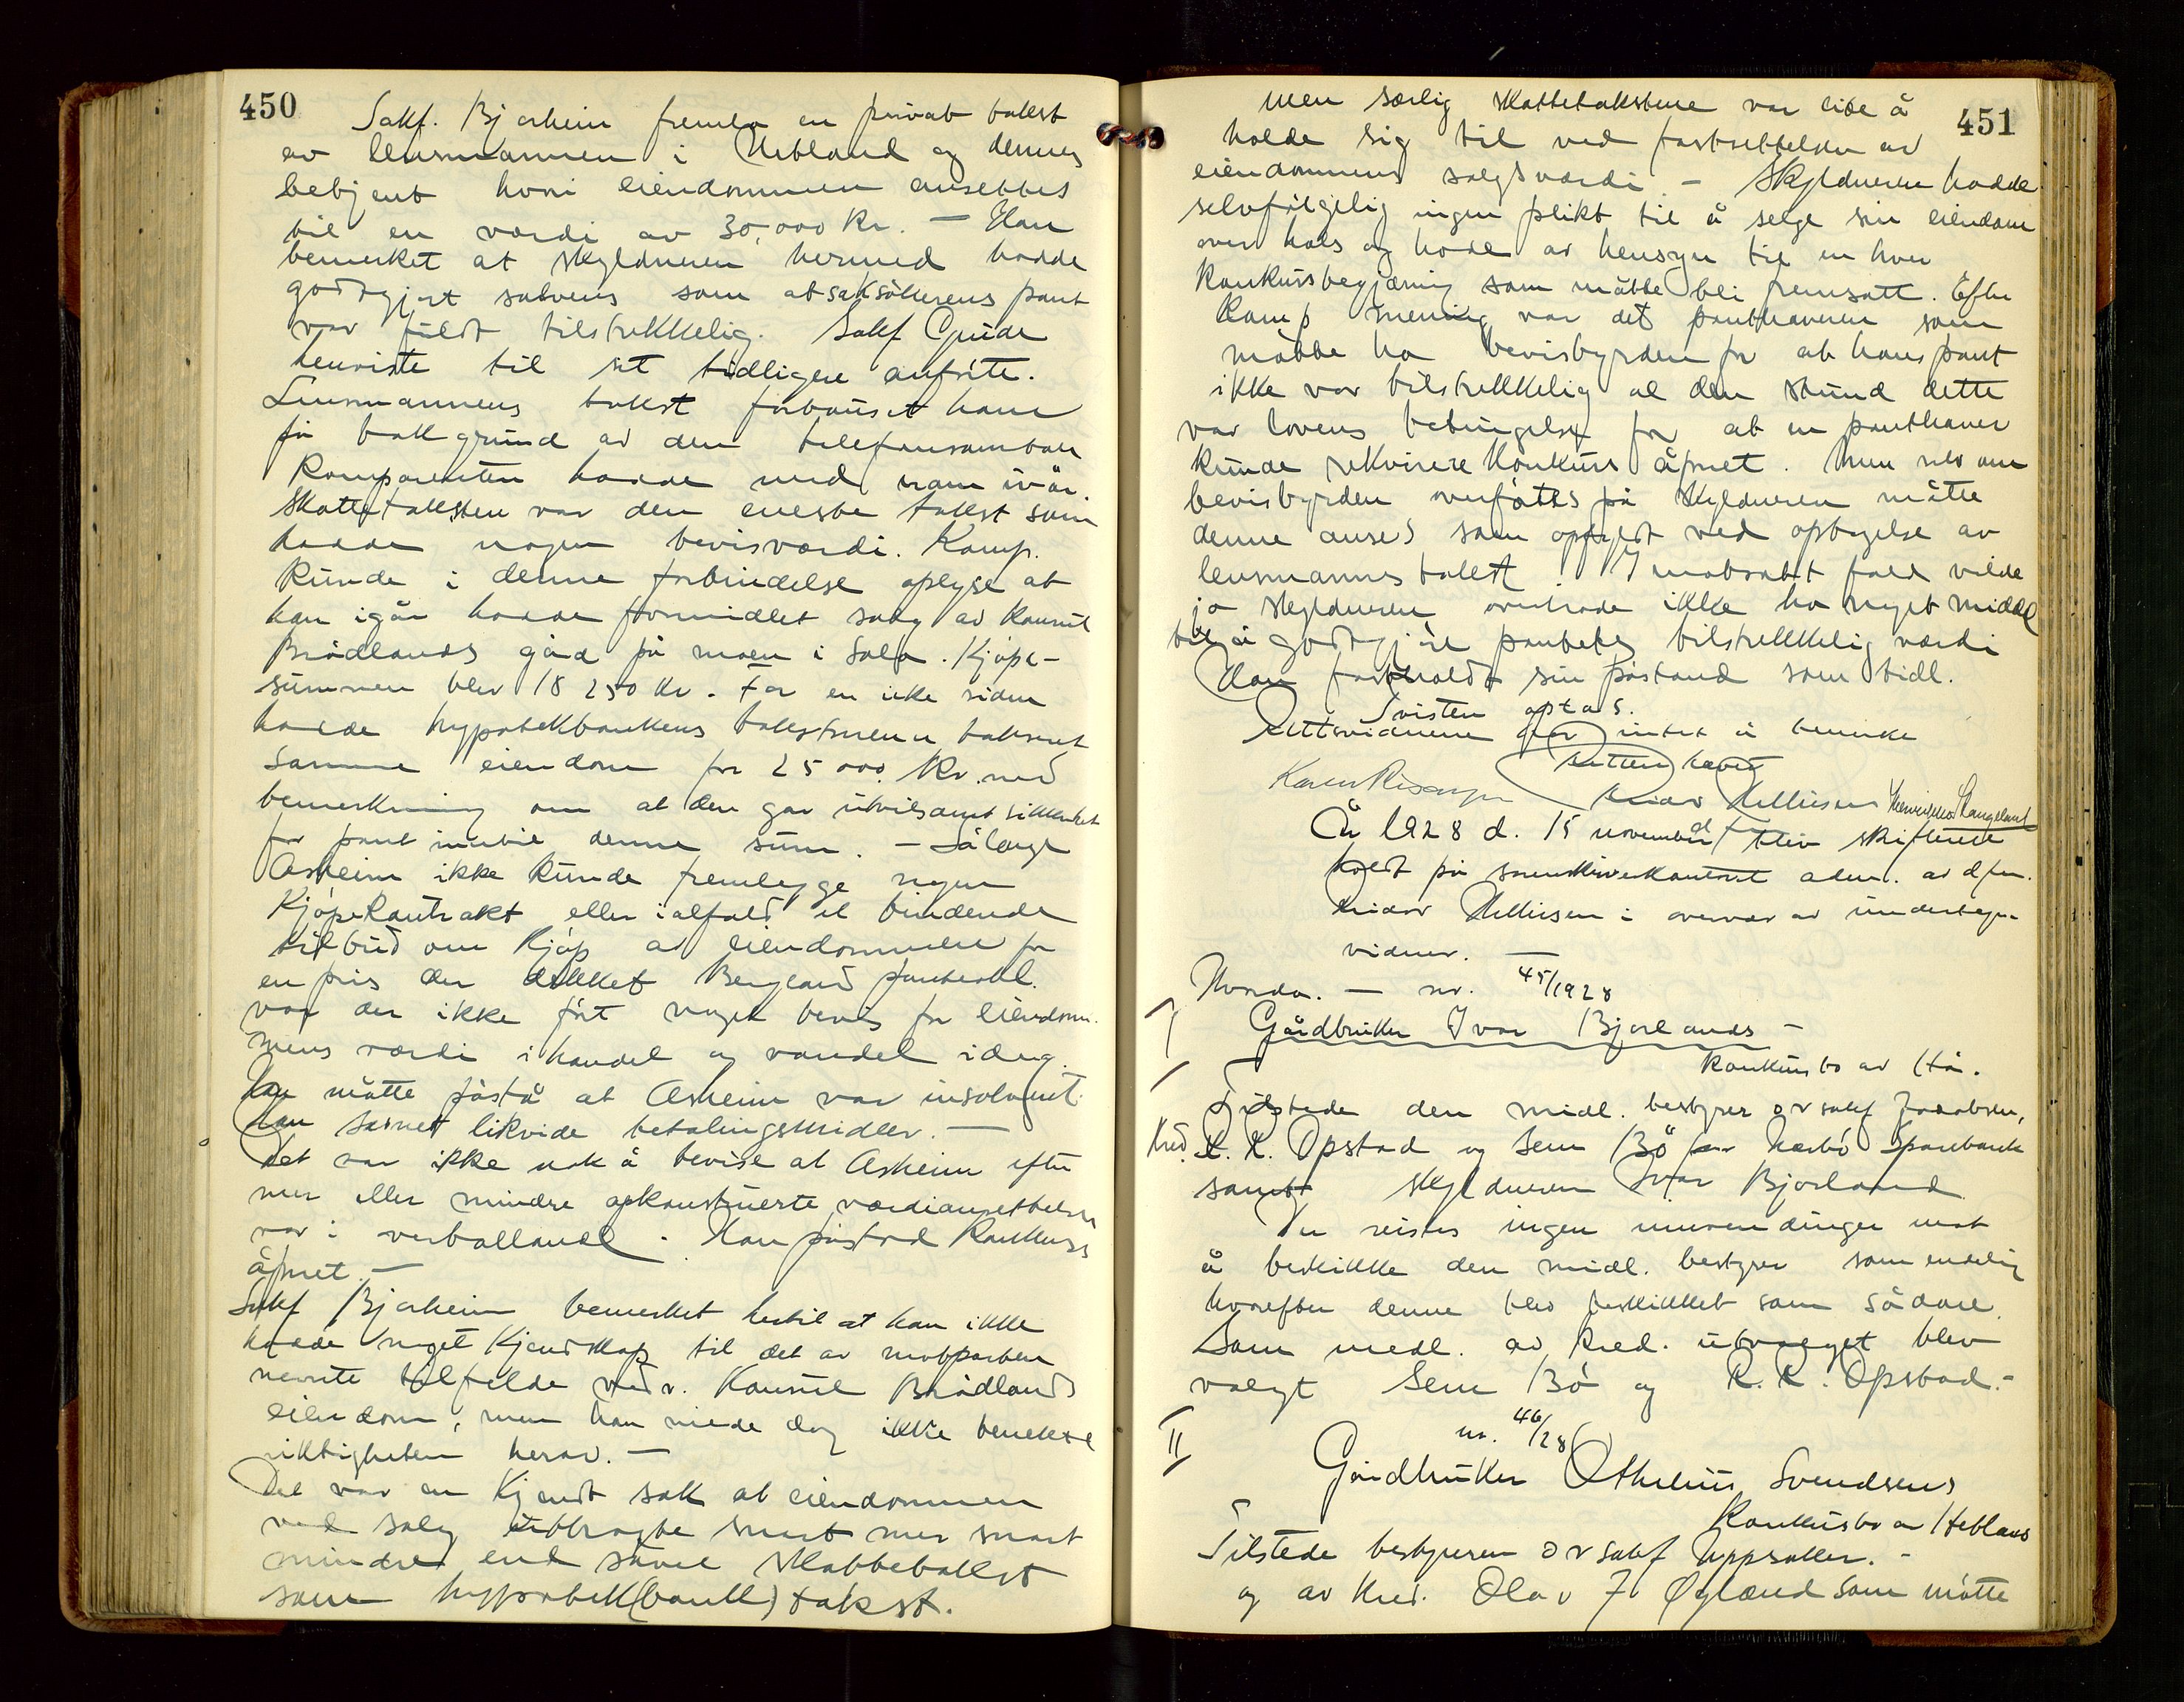 450
Sakf. Bjorheim fremla en privat takst
av lensmannen i Hetland og dennes
betjent hvori eiendommen ansettes
til en værdi av 30,000 kr. — Han
bemerket at skyldneren hermed hadde
godtgjort solvens som at saksökerens pant
var fuldt tilstrekkelig. Sakf Gjude
henviste til sit tidligere anförte.
Lensmannens takst forbauset ham
på bakgrund av den telefonsamtale
Komparenten hadde med ham
Skattetaksten var den eneste takst som
hadde nogen bevisværdi. Komp.
kunde i denne forbindelse oplyse at
han igår hadde formidlet salg av konsul
Brådlands gård på moen i Sola. Kjöpe-
summen blev 18 250 kr. For en uke siden
hadde hypotekbankens takstmenn taksert
samme eiendom for 25 000 kr. med
bemerkning om at den gav utvilsomt sikkerhet
for pant inntil denne sum. — Sålenge
Asheim ikke kunde fremlegge nogen
Kjöpekontrakt eller ialfald et bindende
tilbud om kjöp av eiendommen for
en pris der dekket Bergland pantegjeld
var der ikke fört noget bevis for eiendom-
mens værdi i handel og vandel idag.
Han måtte påstå at Asheim var insolvent.
Han savnet likvide betalingsmidler. —
Det var ikke nok å bevise at Asheim efter
mer eller mindre opkonstruerte værdiansettelser
var i verballanse. Han påstod Konkurs
åpnet. —
Sakf Bjorheim bemerket hertil at han ikke
hadde noget Kjendskap til det av motparten
nevnte tilfelde vedr. Konsul Brådlands
eiendom, men han vilde dog ikke benekte
riktigheten herav. —
Det var en Kjendt sak at eiendommen
ved salg utbragte snart mer snart
mindre end såvel skattetakst
som hypotek(bank)takst.
451
Men særlig skattetakstene var ikke å
holde sig til ved fastsettelse av
eiendommens salgsværdi. — Skyldneren hadde
selvfölgelig ingen plikt til å selge sin eiendom
over hals og hode av hensyn til en hver
konkursbegjæring som måtte bli fremsatt. Efter
Komp mening var det panthaveren som
måtte ha bevisbyrden for at hans pant
ikke var tilstrekkelig al den stund dette
var lovens betingelse for at en panthaver
kunde rekvirere konkurs åpnet. Men selv om
bevisbyrden överföttes på skyldneren måtte
denne anses som opfyldt ved optagelse av
lensmannes takst. I motsatt fald vilde
jo skyldneren overhode ikke ha noget middel
til å godtgjöre pantets tilstrekkelig værdi
Han fastholdt sin påstand som tidl.
Tvisten optas.
Rettsvidnene intet å bemerke
Retten hævet
Karen Risanger Reidar Helliesen Stangeland
År 1928 d. 15 november blev skifterett
holdt på sorenskriverkontoret adm. av dfm.
Reidar Helliesen i overvær av undertegn.
vidner. —
— nr. 45/1928
I
Gårdbruker Ivar Bjorlands —
konkursbo av Hå.
Tilstede den midl. bestyrer o r sakf Jakobsen,
Kred. R. R. Opstad og Sem Bö for Nærbö Sparebank
samt skyldneren Ivar Bjorland
Der reistes ingen innvendinger mot
å beskikke den midl. bestyrer som endelig
hvorefter denne blev beskikket som sådan.
Som medl. av Kred. utvalget blev
valgt Sem Bö og R. R. Opstad. —
II
nr. 46/28
Gårdbruker Othelius Svendsens
Konkursbo av Hetland
Tilstede bestyreren o r sakf Uppsaker. —
og av Kred. Olav J. Øglænd som mötte